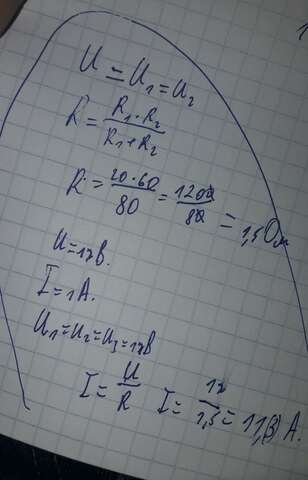 U = U₁ = U₂
R = R₁·R₂ / R₁+R₂
R = 20·60 / 80 = 1200 / 80 = 1,5 Ом
U = 12 В.
I = 1 А.
U₁ = U₂ = U₃ = 12 В
I = U / R I = 12 / 1,5 = 11,(3) А.